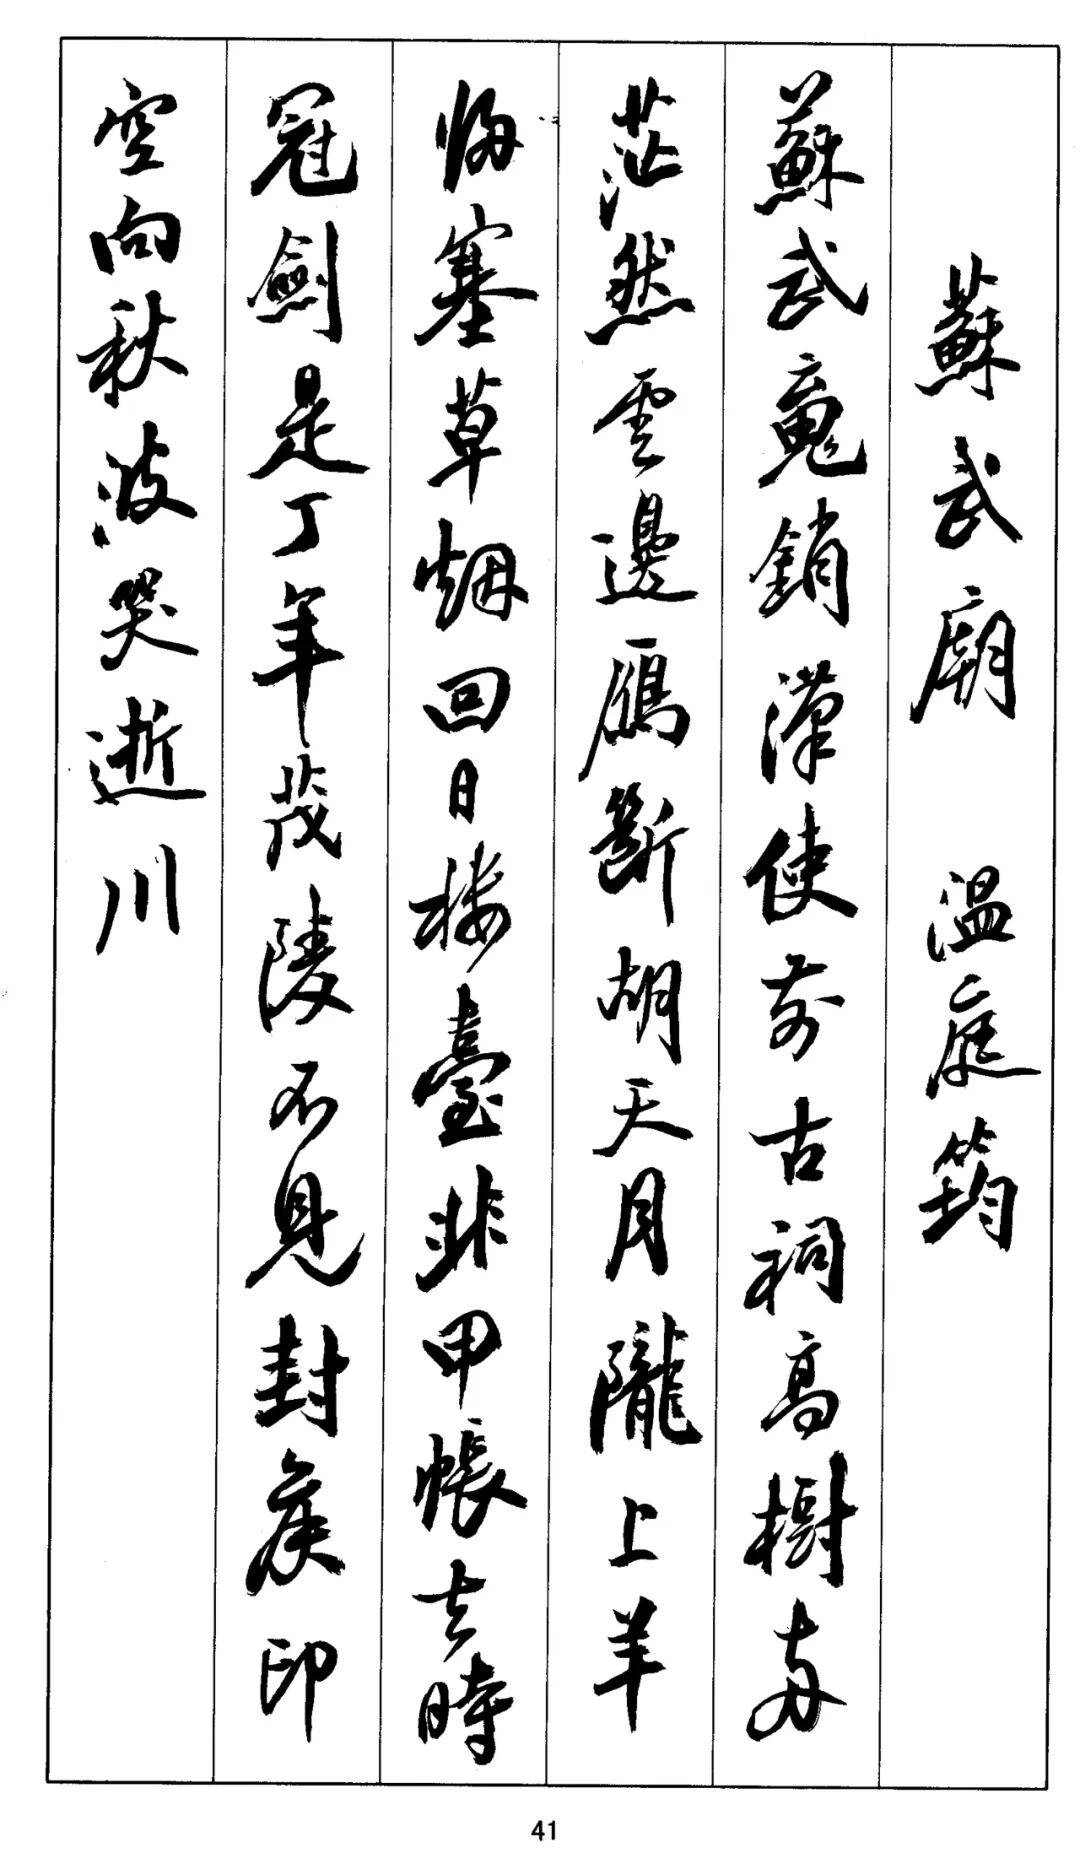 蘇武廟 溫庭筠
蘇武魂銷漢使前古祠高樹兩
茫然雲邊雁斷胡天月隴上羊
歸塞草烟回日樓臺非甲帳去時
冠劍是丁年茂陵不見封侯印
空向秋波哭逝川
41